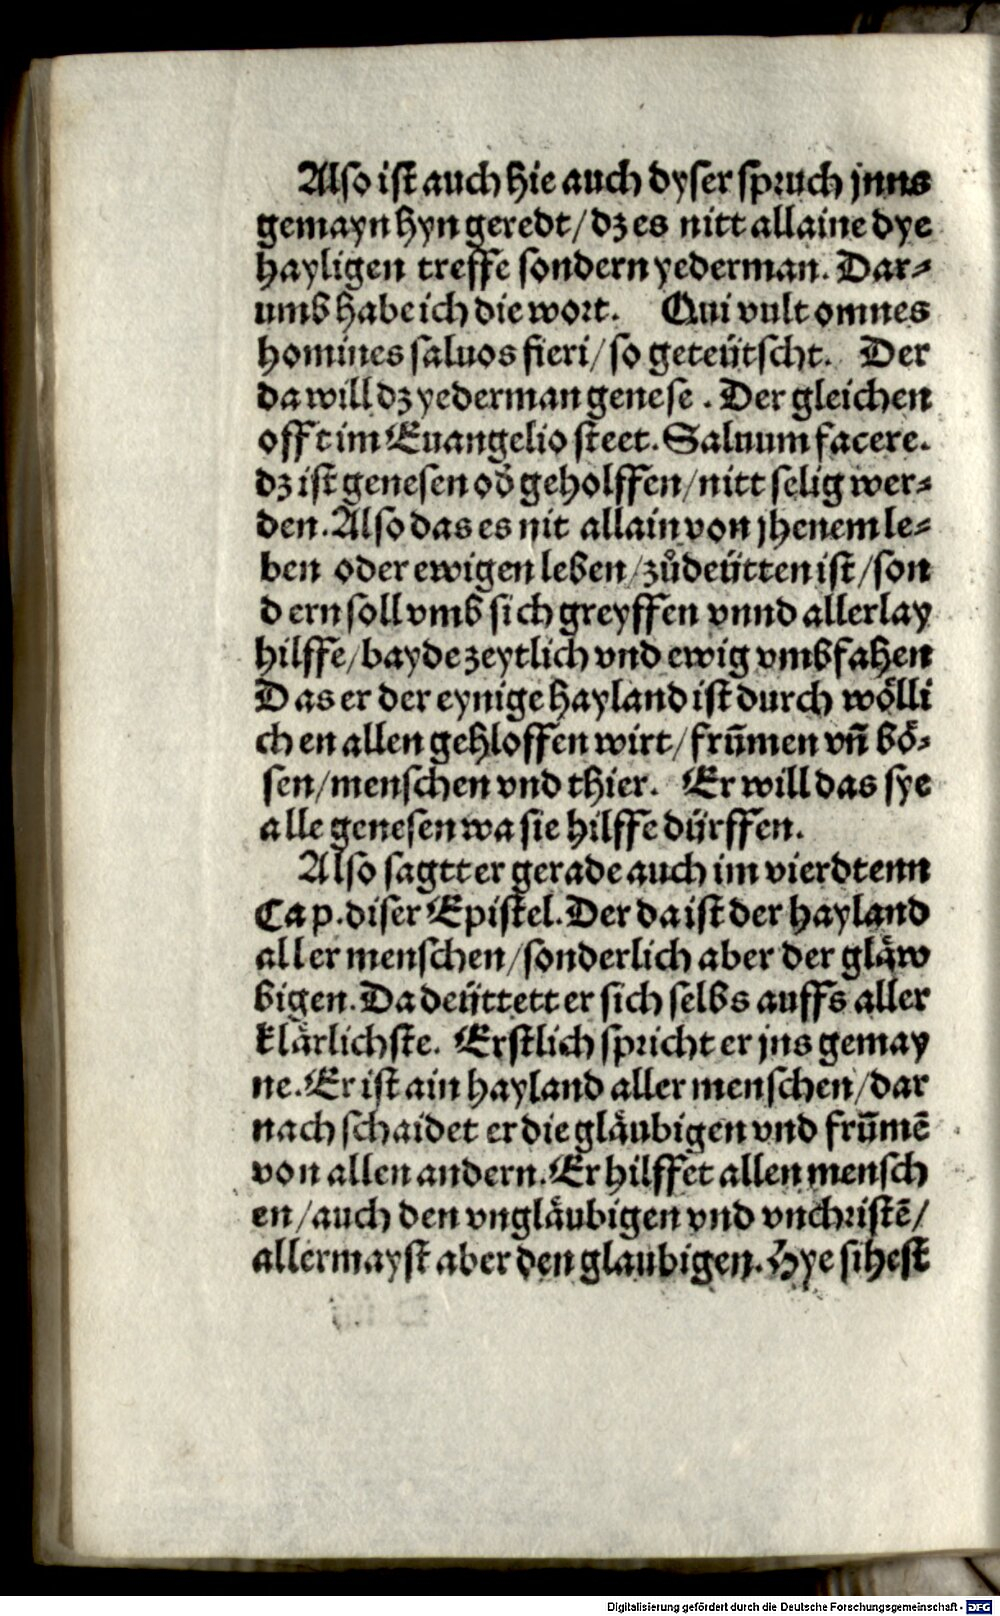 Also ist auch hie auch dyser spruch jnns
gemayn hyn geredt/ dz es nitt allaine dye
hayligen treffe sondern yederman. Dar⸗
umb habe ich die wort. Qui vult omnes
homines saluos fieri/ so geteütscht. Der
da will dz yederman genese. Der gleichen
offt im Euangelio steet. Saluum facere.
dz ist genesen od̕ geholffen/ nitt selig wer⸗
den. Also das es nit allain von jhenem le⸗
ben oder ewigen leben/ zůdeütten ist/ son
dern soll vmb sich greyffen vnnd allerlay
hilffe/ bayde zeytlich vnd ewig vmbfahen
Das er der eynige hayland ist durch wölli
chen allen gehloffen wirt/ frūmen vn̄ bö⸗
sen/ menschen vnd thier. Er will das sye
alle genesen wa sie hilffe dürffen.
Also sagtt er gerade auch im vierdtenn
Cap. diser Epistel. Der da ist der hayland
aller menschen/ sonderlich aber der gläw
bigen. Da deüttett er sich selbs auffs aller
klärlichste. Erstlich spricht er jns gemay
ne. Er ist ain hayland aller menschen/ dar
nach schaidet er die gläubigen vnd frūmē
von allen andern. Er hilffet allen mensch
en/ auch den vngläubigen vnd vnchristē/
allermayst aber den glaubigen. Hye sihest
Digitalisierung gefördert durch die Deutsche Forschungsgemeinschaft - DFG